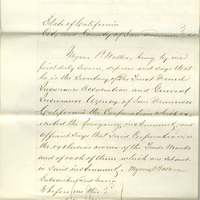 State of California
City and County of San Francisco
Myron P. Walker, being by me
first duly sworn, deposes and says that
he is the Secretary of the
Insurance Association and General
Insurance Agency of San Francisco
California the Corporation which ex-
ecuted the foregoing instrument; and
affiant says that said Corporation is
the exclusive owner of the Trade Marks
and of each of them which are set out
in said instrument. Myron P. Walker
Subscribed and sworn
to before me this